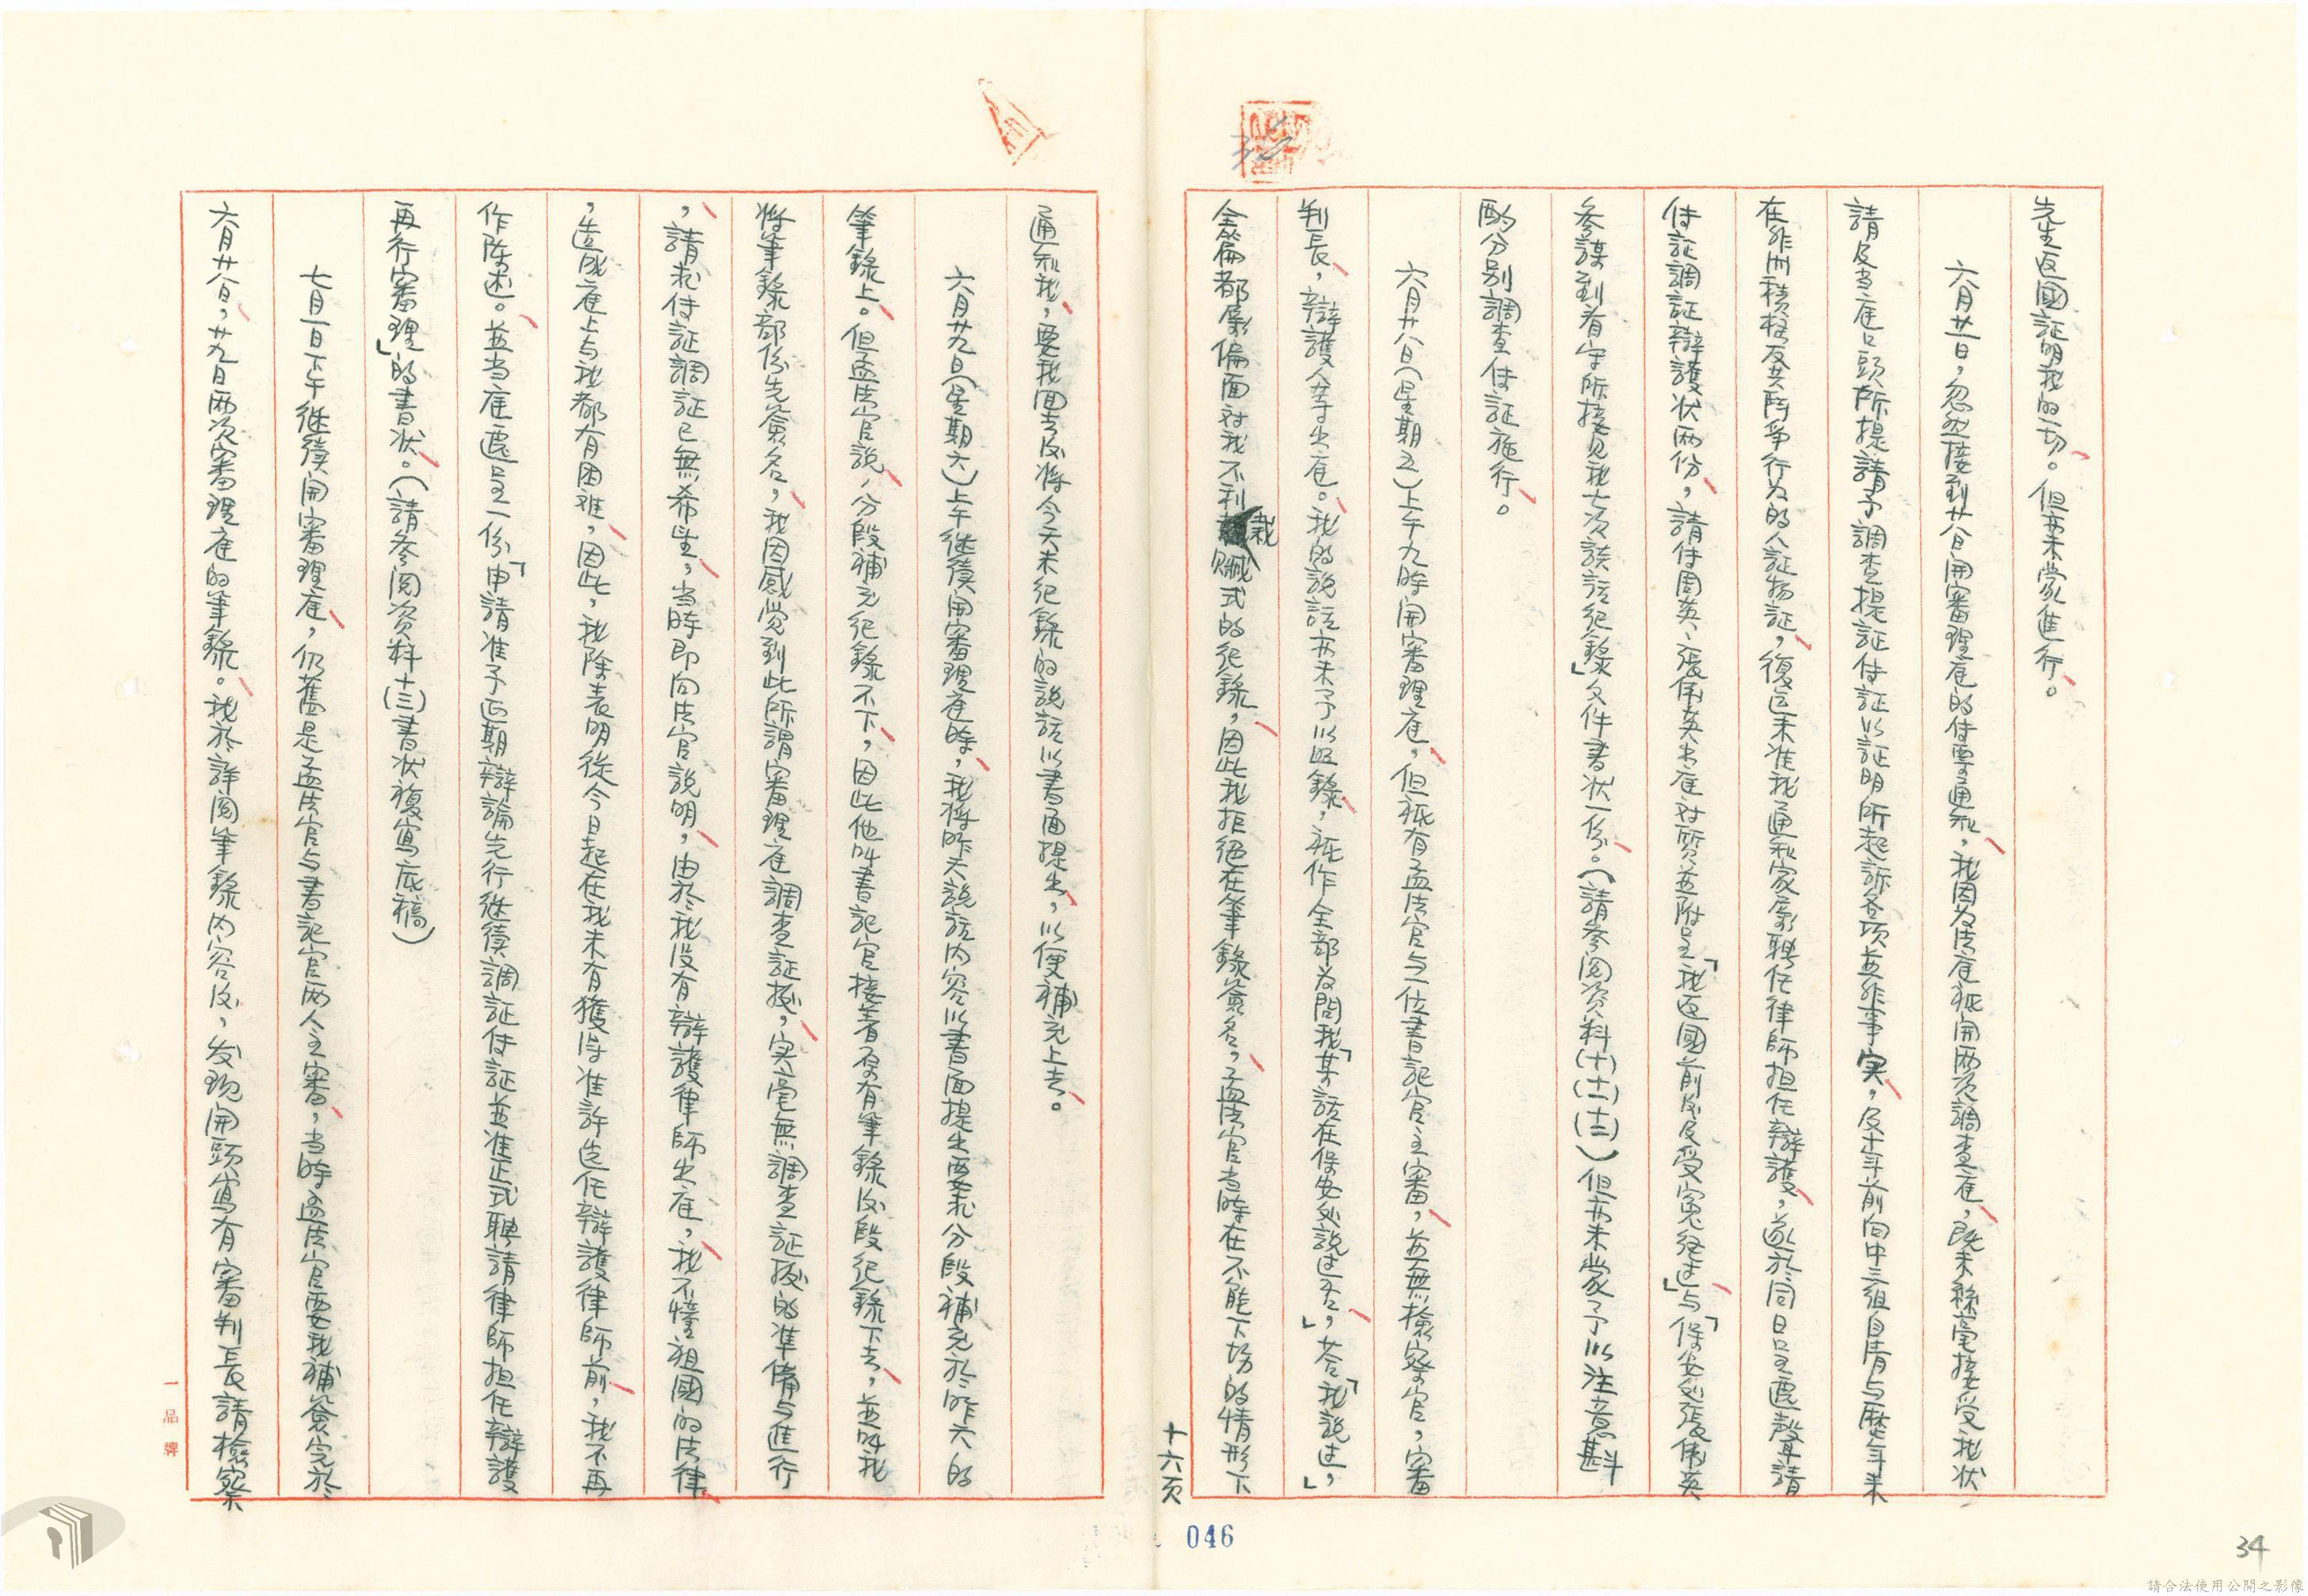 先生返國証明我的一切。但亦未蒙進行。
六月廿一日，忽然接到廿八日開審理庭的传票通知，我因为法庭祗開两次調查庭，既未絲毫接受我状
請及当庭口頭所提請予調查提証传証以証明所起訴各項並非事实，及十年前向中三組自清与歷年来
在非洲積極反共鬥争行为的人証物証，復迄未准我通知家屬聘任律師担任辯護，遂於同日呈遞聲請
传証調証辯護状两份，請传周英、張偉英出庭对質並附呈「我返國前後及受冤经过」与「保安处張偉英
参謀到看守所接見我七次談話纪錄」文件書状一份。（請参阅资料(十)(十一)(十二)）但亦未蒙予以注意斟
酌分别調查传証施行。
六月廿八日（星期五）上午九時開審理庭，但祗有孟法官与一位書記官主審，並無檢察官，審
判長，辯護人等出庭。我的說話亦未予以照錄，祗作全部为問我「某話在保安处說过否」，答「我說过」，
全篇都屬偏面对我不利栽贓式的纪錄，因此我拒绝在筆錄簽名，孟法官当時在不能下场的情形下
十六页
通知我，要我回去後将今天未纪錄的說話以書面提出，以便補充上去。
六月廿九日（星期六）上午继續開審理庭時，我将昨天說話内容以書面提出要求分段補充於昨天的
筆錄上。但孟法官說，分段補充纪錄不下，因此他叫書記官接着原有筆錄後段纪錄下去，並叫我
将筆錄部份先簽名，我因感觉到此所謂審理庭調查証据，实毫無調查証据的準備与進行
，請求传証調証已無希望，当時即向法官說明，由於我没有辯護律師出庭，我不懂祖國的法律
，造成庭上与我都有困难，因此，我除表明從今日起在我未有獲得准許选任辯護律師前，我不再
作陈述。並当庭遞呈一份「申請准予延期辯論先行继續調証传証並准正式聘請律師担任辯護
再行審理」的書状。（請参阅资料(十三)書状複寫底稿）
七月一日下午继續開審理庭，仍舊是孟法官与書記官两人主審，当時孟法官要我補簽完於
六月廿八日，廿九日两次審理庭的筆錄。我於詳阅筆錄内容後，发現開頭寫有審判長請檢察
一品牌
046
34
請合法使用公開之影像